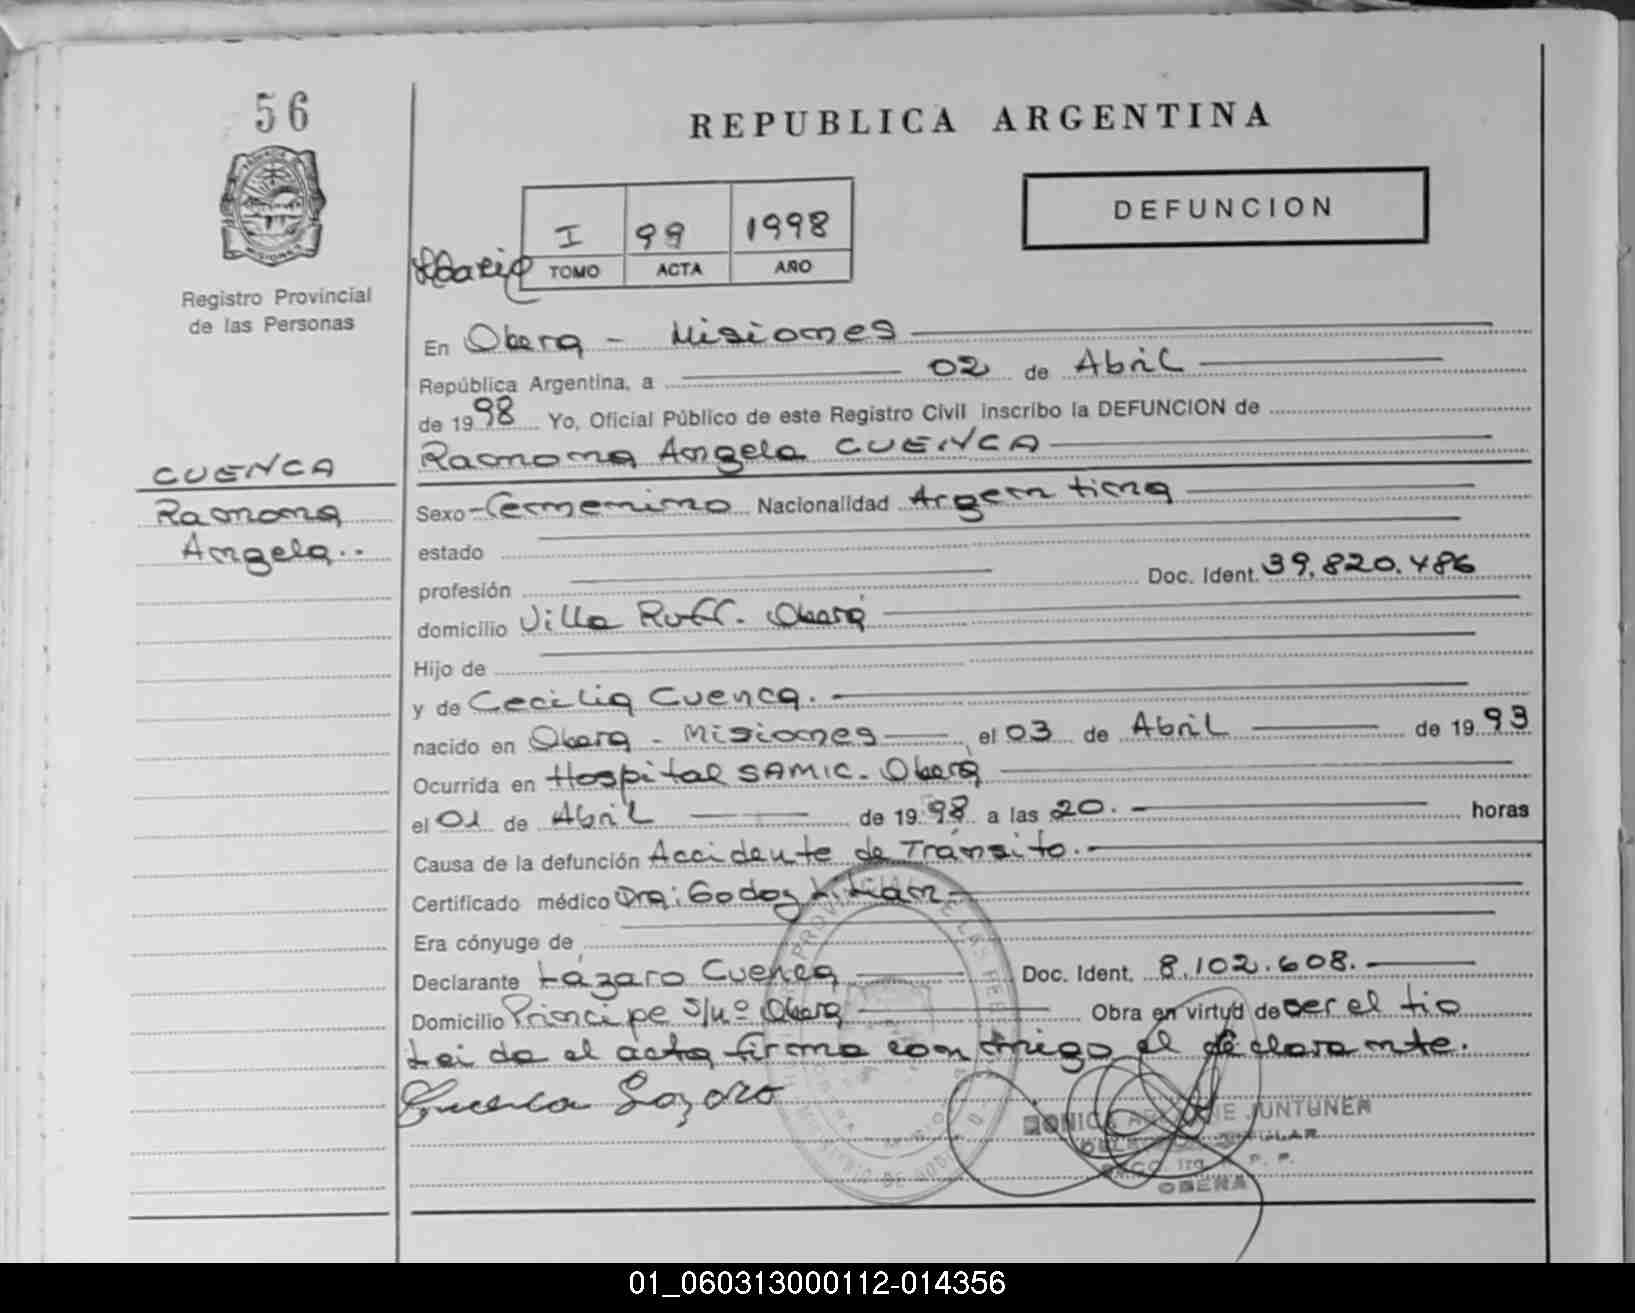 56
REPUBLICA ARGENTINA
DEFUNCION
I 99 1998
TOMO ACTA AÑO
Registro Provincial
de las Personas
En Oberá - Misiones
República Argentina, a 02 de Abril
de 1998 Yo, Oficial Público de este Registro Civil inscribo la DEFUNCION de
Ramona Angela CUENCA
CUENCA
Ramona
Angela..
Sexo - Femenino Nacionalidad Argentina
estado
profesión Doc. Ident. 39.820.486
domicilio Villa Ruff. Oberá
Hijo de
y de Cecilia Cuenca.
nacido en Oberá - Misiones el 03 de Abril de 1993
Ocurrida en Hospital SAMIC. Oberá
el 01 de Abril de 1998 a las 20. horas
Causa de la defunción Accidente de Tránsito.
Certificado médico Dra: Godoy Lilian
Era cónyuge de
Declarante Lázaro Cuenca Doc. Ident. 8.102.608.
Domicilio Principe S/Nº Oberá Obra en virtud de ser el tio
Leida el acta firma conmigo el declarante.
Cuenca Lazaro
JUNTUNEN
OBERA
01_060313000112-014356